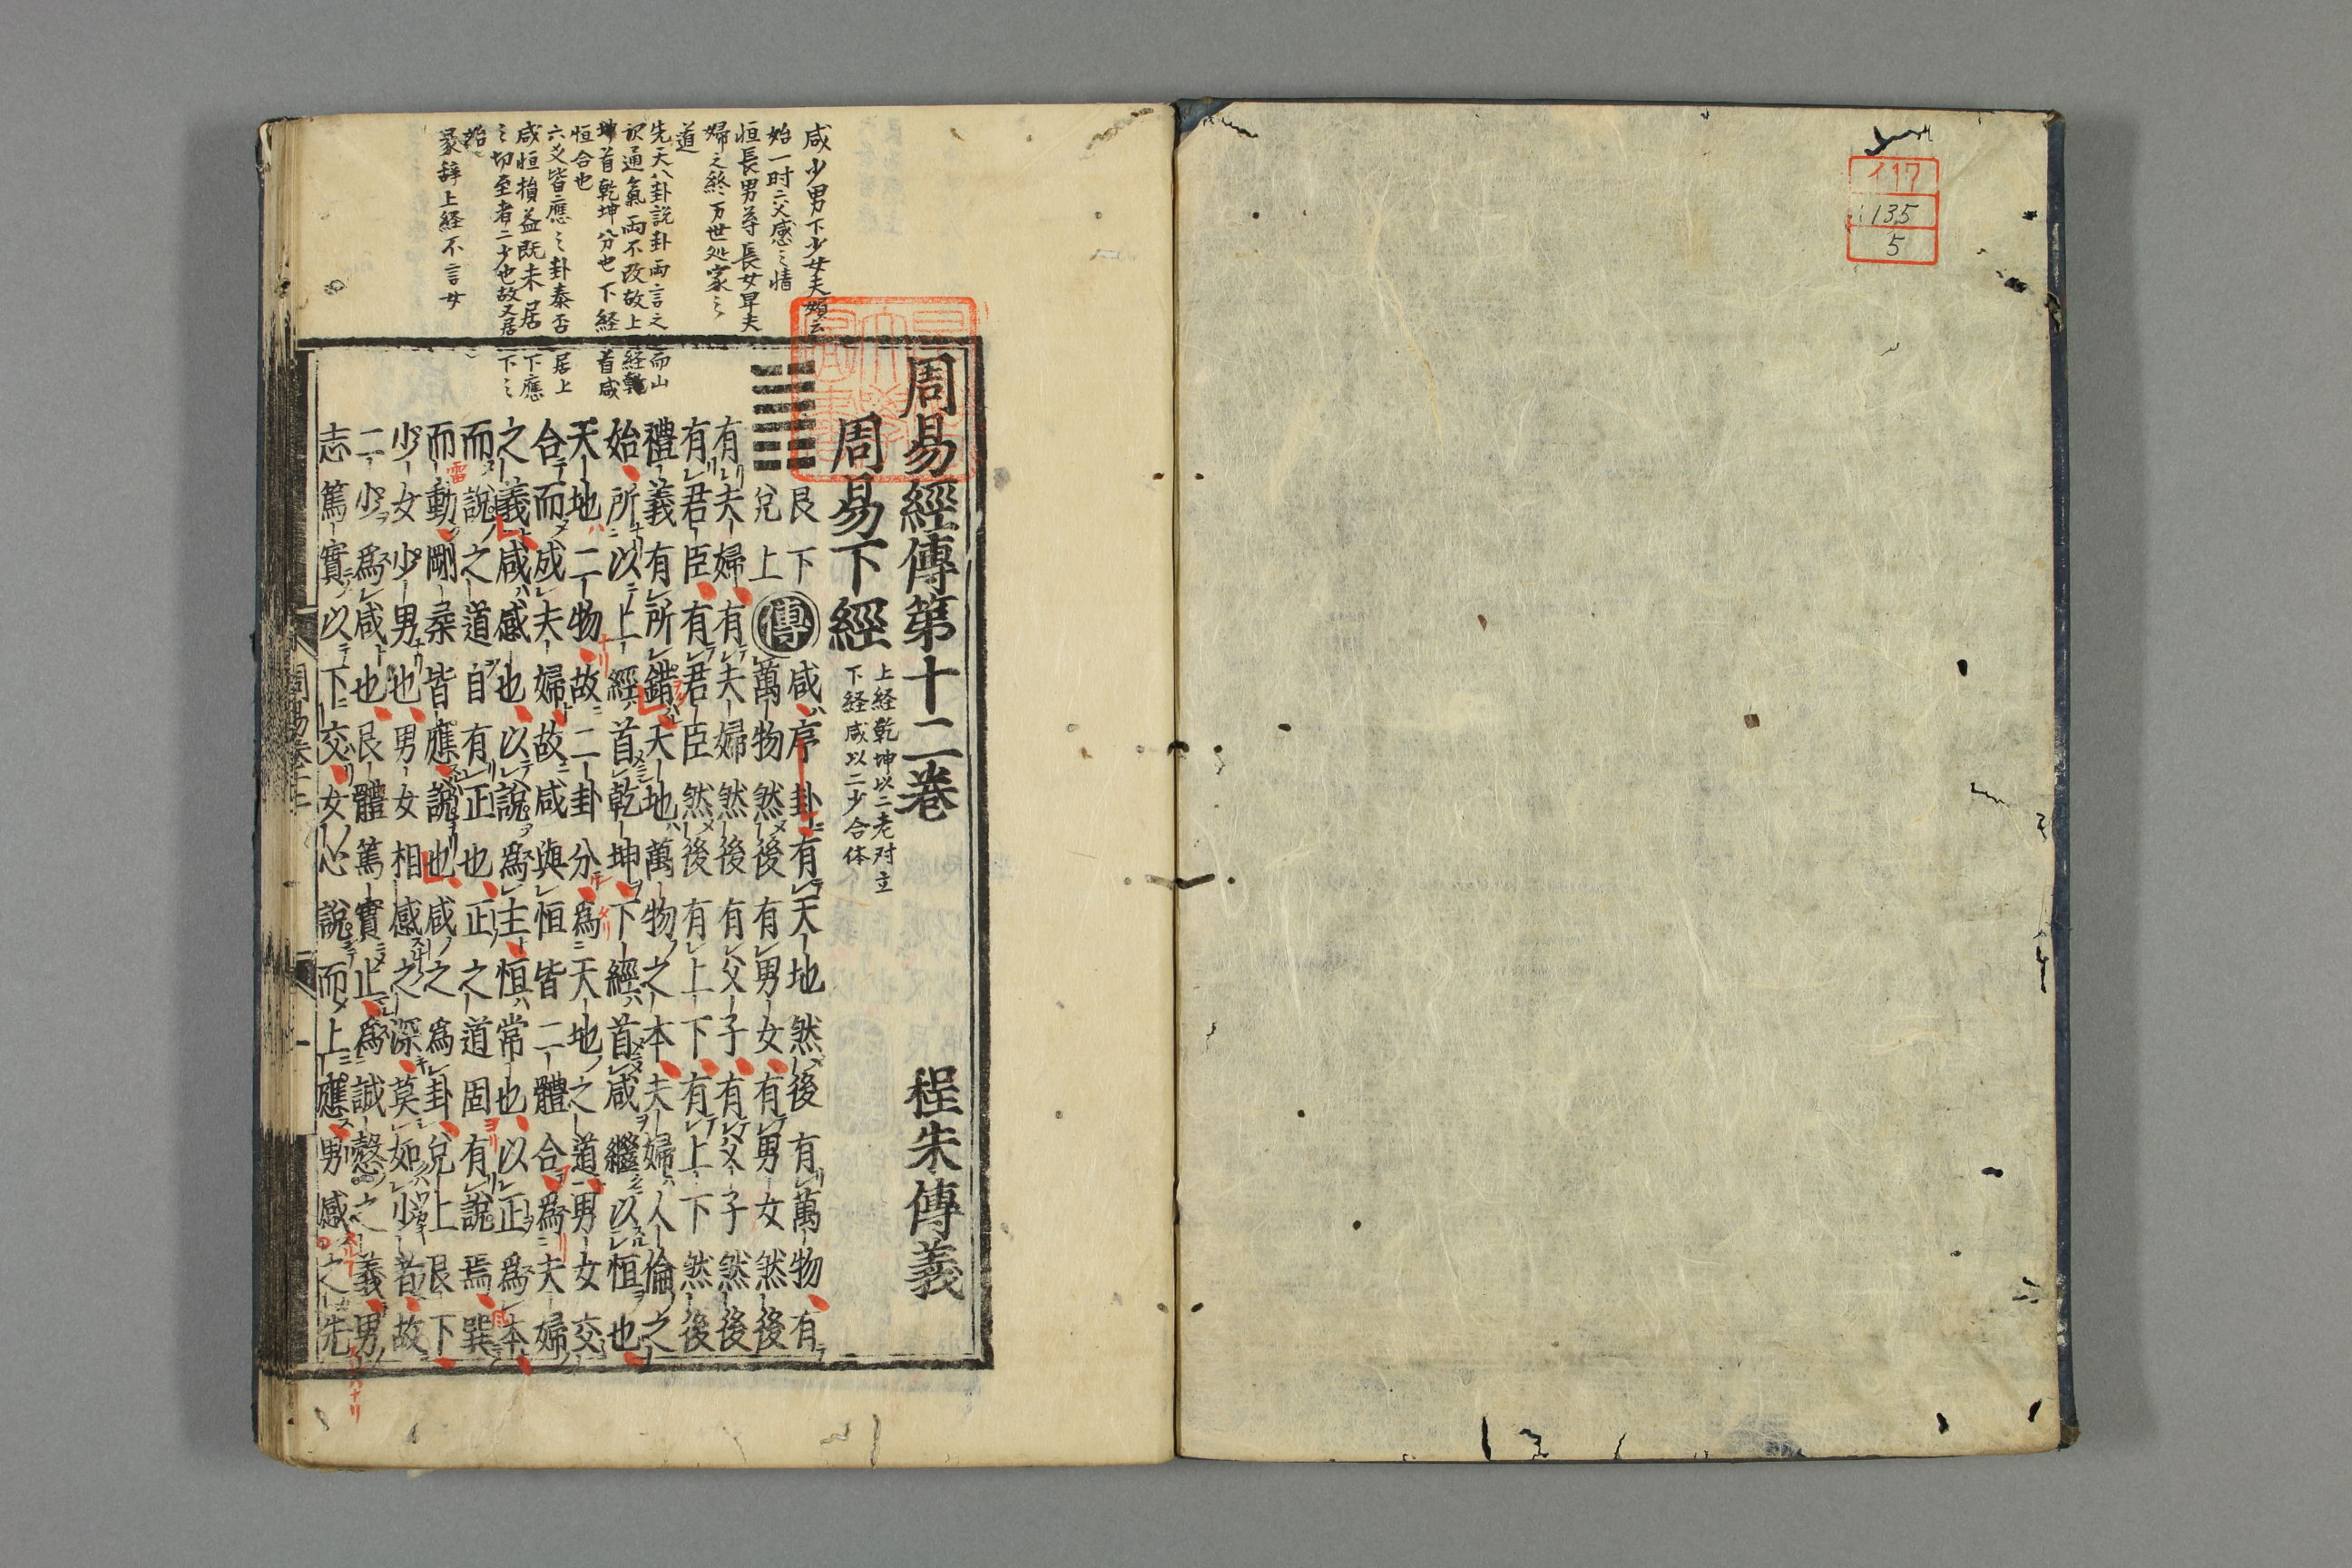 117
135
5
周易經傳第十二卷 程朱傳義
周易下經
上経乾坤以二老対立
下経咸以二少合体
艮下
兌上
傳
咸序卦有天地然後有萬物有
萬物然後有男女有男女然後
有夫婦有夫婦然後有父子有父子然後
有君臣有君臣然後有上下有上下然後
禮義有所錯天地萬物之本夫婦人倫之
始所以上經首乾坤下經首咸繼以恒也
天地二物故二卦分爲天地之道男女交
合而成夫婦故咸與恒皆二體合爲夫婦
之義咸感也以說爲主恒常也以正爲本
而說之道自有正也正之道固有說焉巽
而動剛柔皆應說也咸之爲卦兌上艮下
少女少男也男女相感之深莫如少者故
二少爲咸也艮體篤實止爲誠慤之義男
志篤實以下交女心說而上應男感之先
咸少男下少女夫婦之
始一时二爻感之情
恒長男尊長女卑夫
婦之終万世処家之
道
先天八卦説卦両言之而山
沢通氣両不改故上経乾
坤首乾坤分也下経首咸
恒合也
六爻皆應之卦泰否居上
咸恒損益既未居下應
之切至者二少也故又居下之
始
彖辞上経不言女
周易卷十二
一